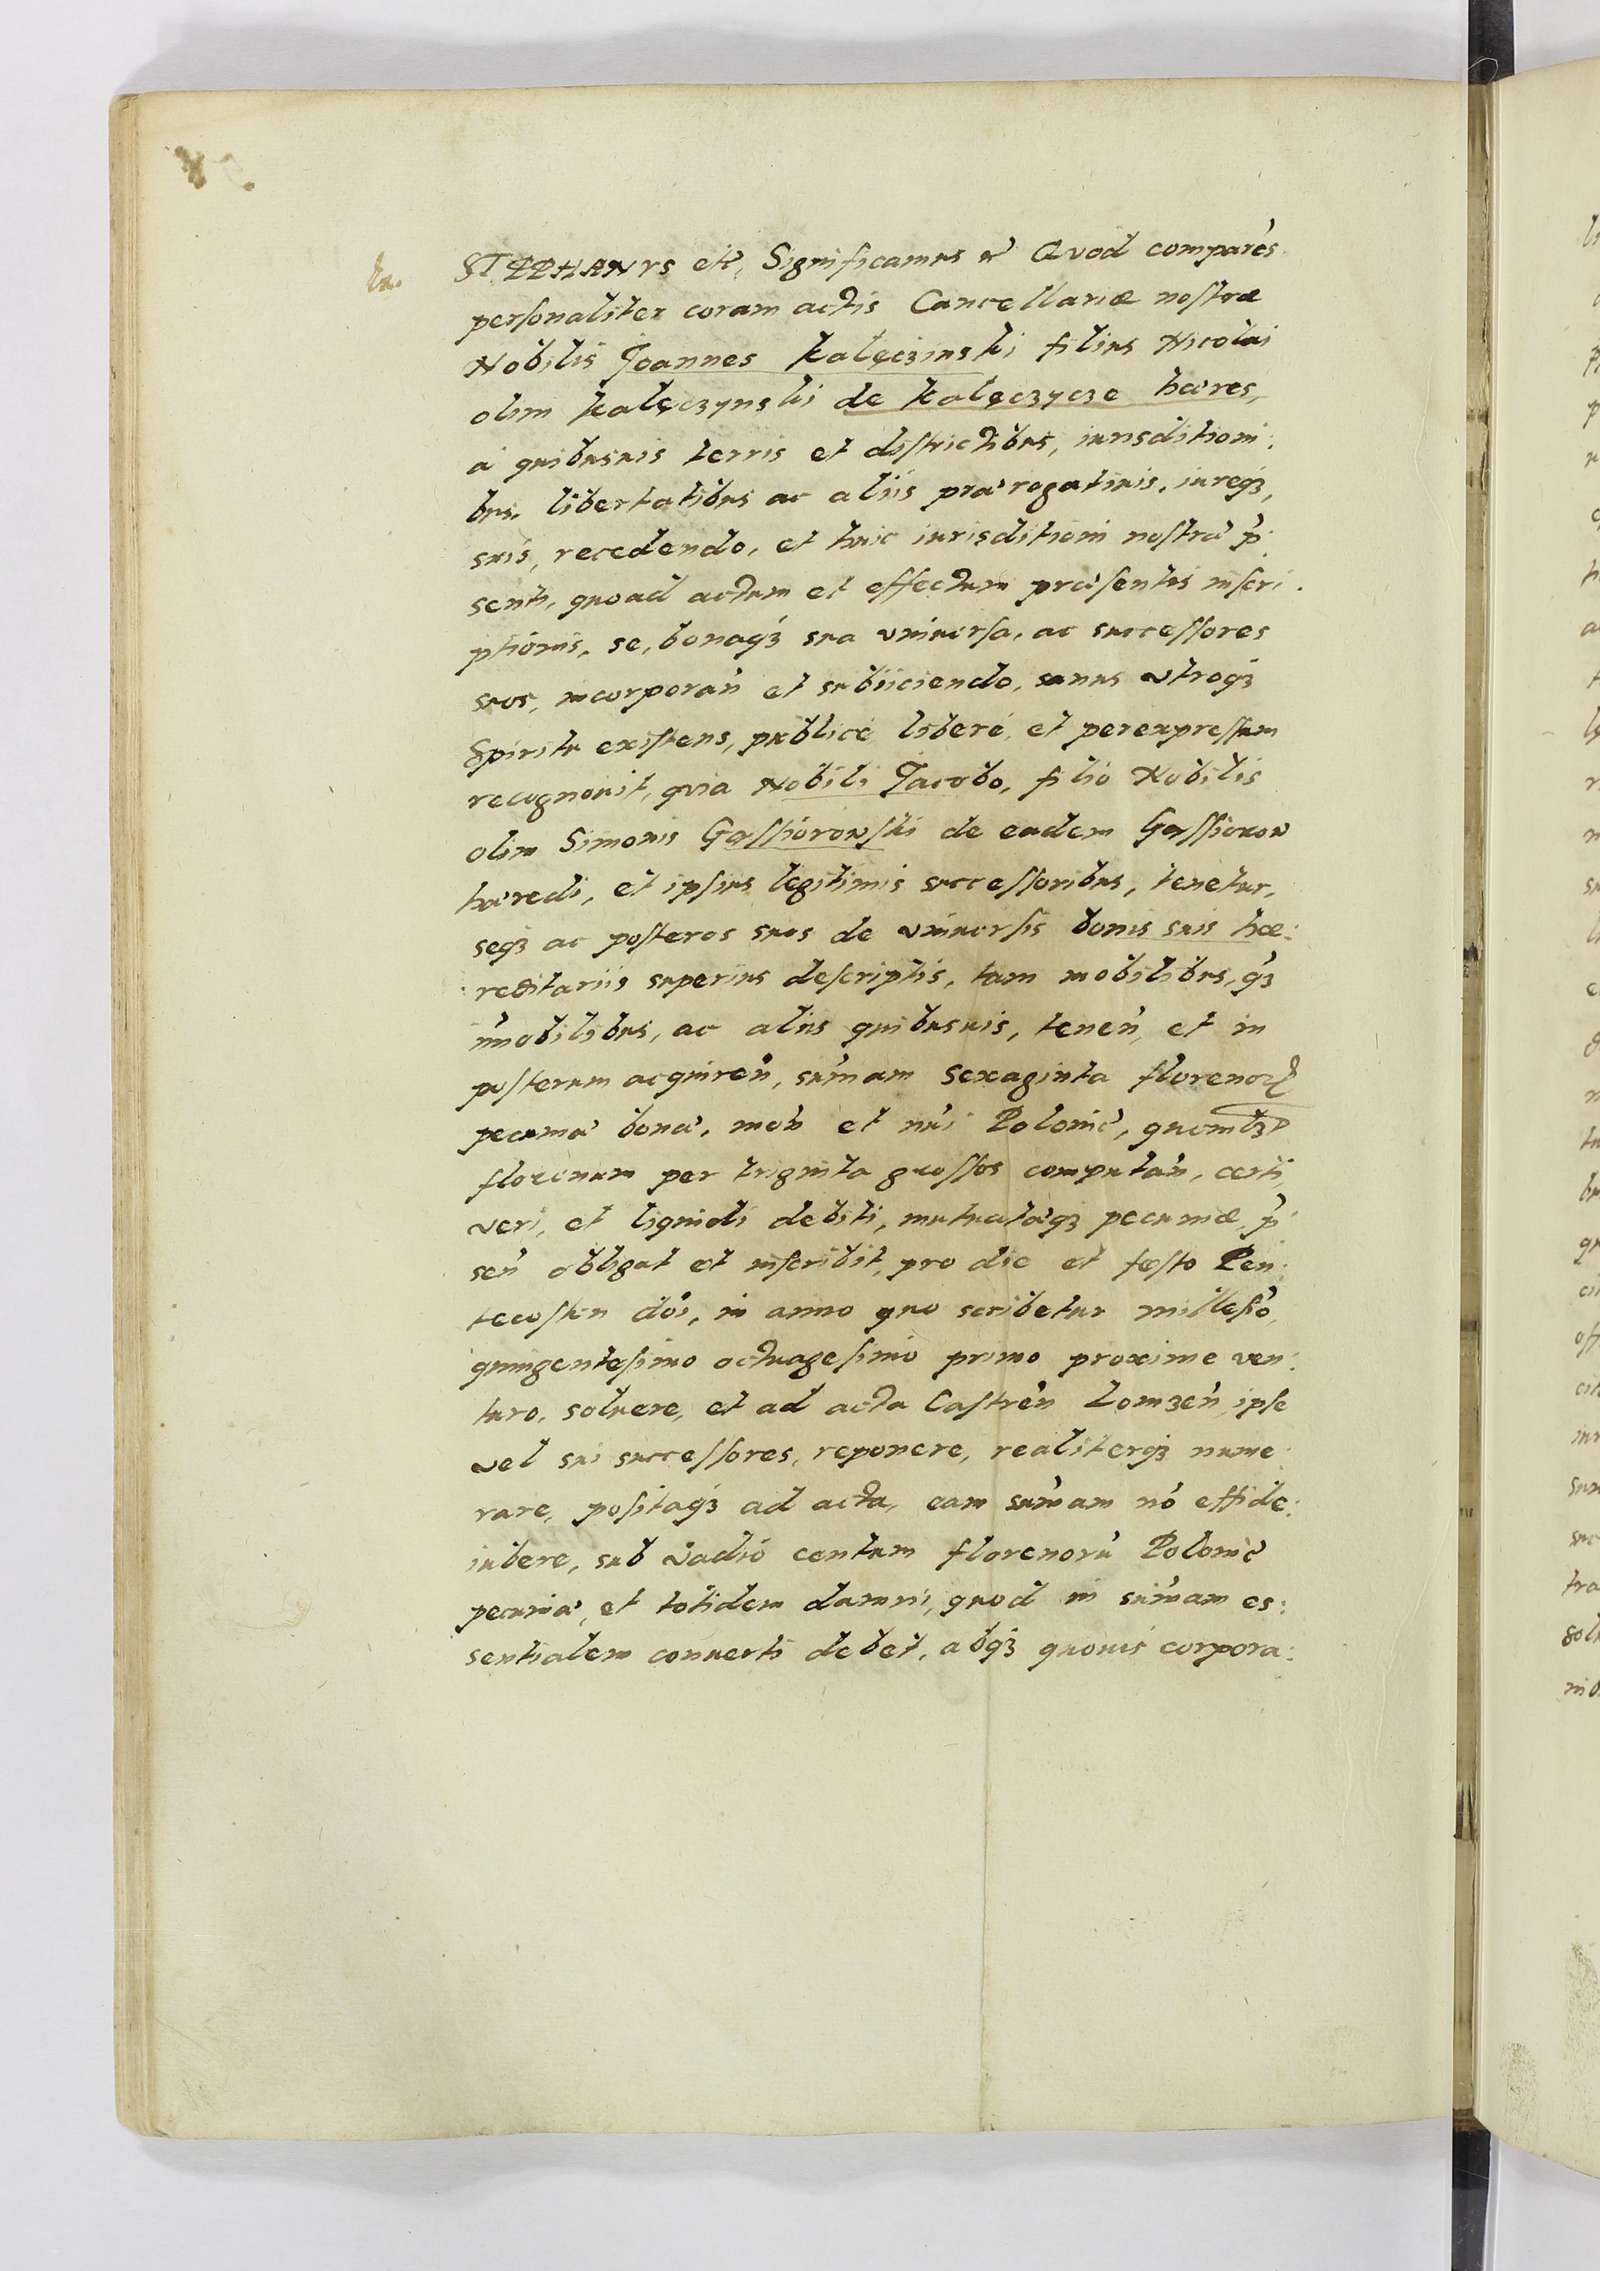 STEPHANVS etc, Significamus etc Quod comparēs
personaliter coram actis Cancellariæ nostræ
Nobilis Joannes Kalęczinski filius Nicolai
olim Kalęczynski de Kalęczycze hæres,
a quibusuis terris et districtibus, iurisditioni:
bus. libertatibus ac aliis prærogatiuis, iureqȝ,
suis, recedendo, et huic iurisditioni nostræ p̄:
senti, quoad actum et effectum præsentis inscri:
ptionis, se, bonaqȝ sua vniuersa, ac successores
suos, incorporan̄ et subiiciendo, sanus vtroqȝ
Spiritu existens, publicè liberè, et per expressum
recognouit, quia Nobili Jacobo, filio Nobilis
olim Simonis Gassiorowski de eadem Gassiorow
hæredi, et ipsius legitimis successoribus, tenetur,
seqȝ ac posteros suos de vniuersis bonis suis hæ:
reditariis superius descriptis, tam mobilibus, qȝ
im̄obilibus, ac aliis quibusuis, tenen̄, et in
posterum acquiren̄, sum̄am sexaginta florenoꝝ
pecuniæ bonæ, mon̄ et nr̄i Polonic̄, quomlȝ
florenum per triginta grossos computan̄, certi,
veri, et liquidi debiti, mutuatæqȝ pecuniæ, p̄:
sen̄ obligat et inscribit, pro die et festo Pen:
tecosten do͞i, in anno quo scribetur millesi͞o,
quingentesimo octuagesimo primo proxime ven:
turo, soluere, et ad acta Castren̄ Lomzen̄, ipse
vel sui successores, reponere, realiterqȝ nume:
rare, positaqȝ ad acta, eam sum̄am no͞ effide:
iubere, sub vadio centum florenorū Polonic̄
pecuniæ, et totidem damni, quod in sum̄am es:
sentialem conuerti debet, absqȝ quouis corpora: